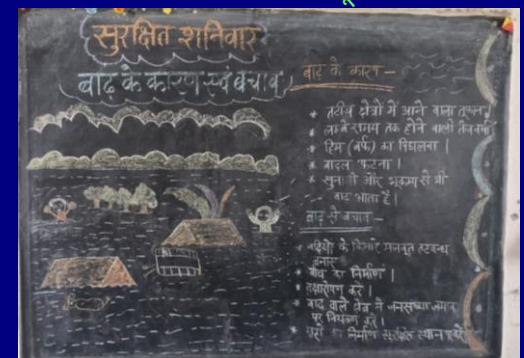 सुरक्षित शनिवार
बाढ़ के कारण एवं बचाव
बाढ़ के कारण -
* तटीय क्षेत्रों में आने वाला तूफान
* लम्बे समय तक होने वाली तेज वर्षा
* हिम (बर्फ) का पिघलना ।
* बादल फटना ।
* सुनामी और भूकम्प से भी
बाढ़ आता है ।
बाढ़ से बचाव -
* नदियों के किनारे मजबूत तटबन्ध
बनाकर
* बाँध का निर्माण ।
* वृक्षारोपण करें ।
* बाढ़ वाले क्षेत्र में जनसंख्या जमाव
पर नियंत्रण करें ।
* घरों का निर्माण सुरक्षित स्थान पर